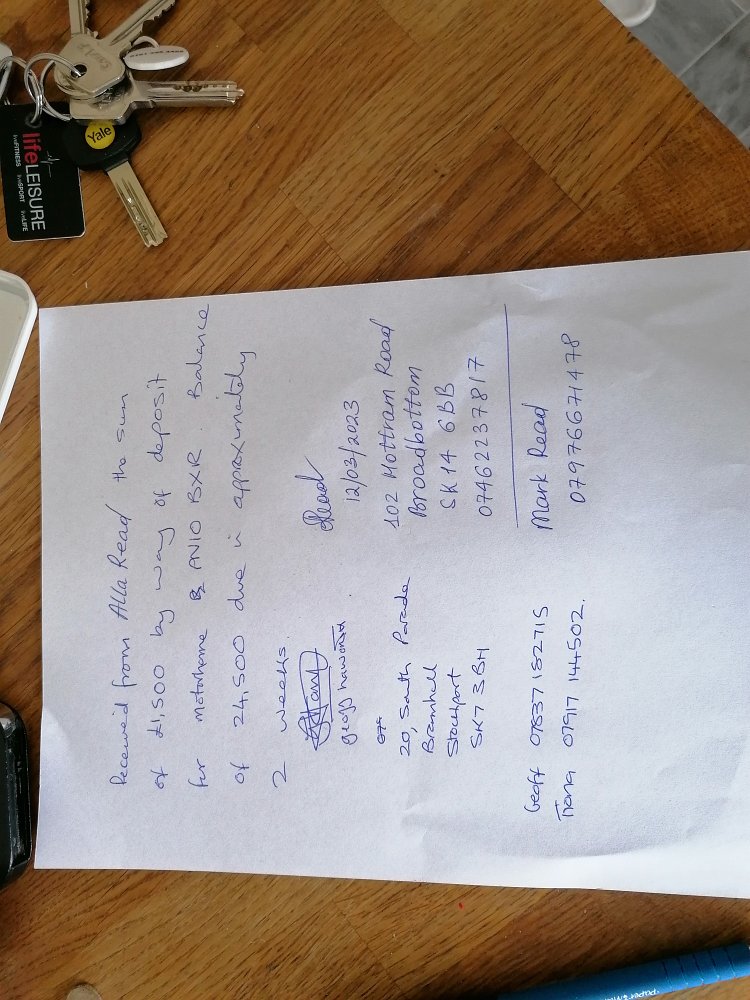 Received from Alla Read the sum
of £1,500 by way of deposit
for motorhome AN10 BXR. Balance
of 24,500 due in approximately
2 weeks.
geoff haworth
20, South Parade
Bramhall
Stockport
SK7 3BH
Geoff 07837 182715
Tiana 07917 144502.
Read
12/03/2023
102 Hottram Road
Broadbottom
SK14 6BB
07462237817
Mark Read
07976671478
lifeLEISURE
liveFITNESS
liveSPORT
liveLIFE
Yale